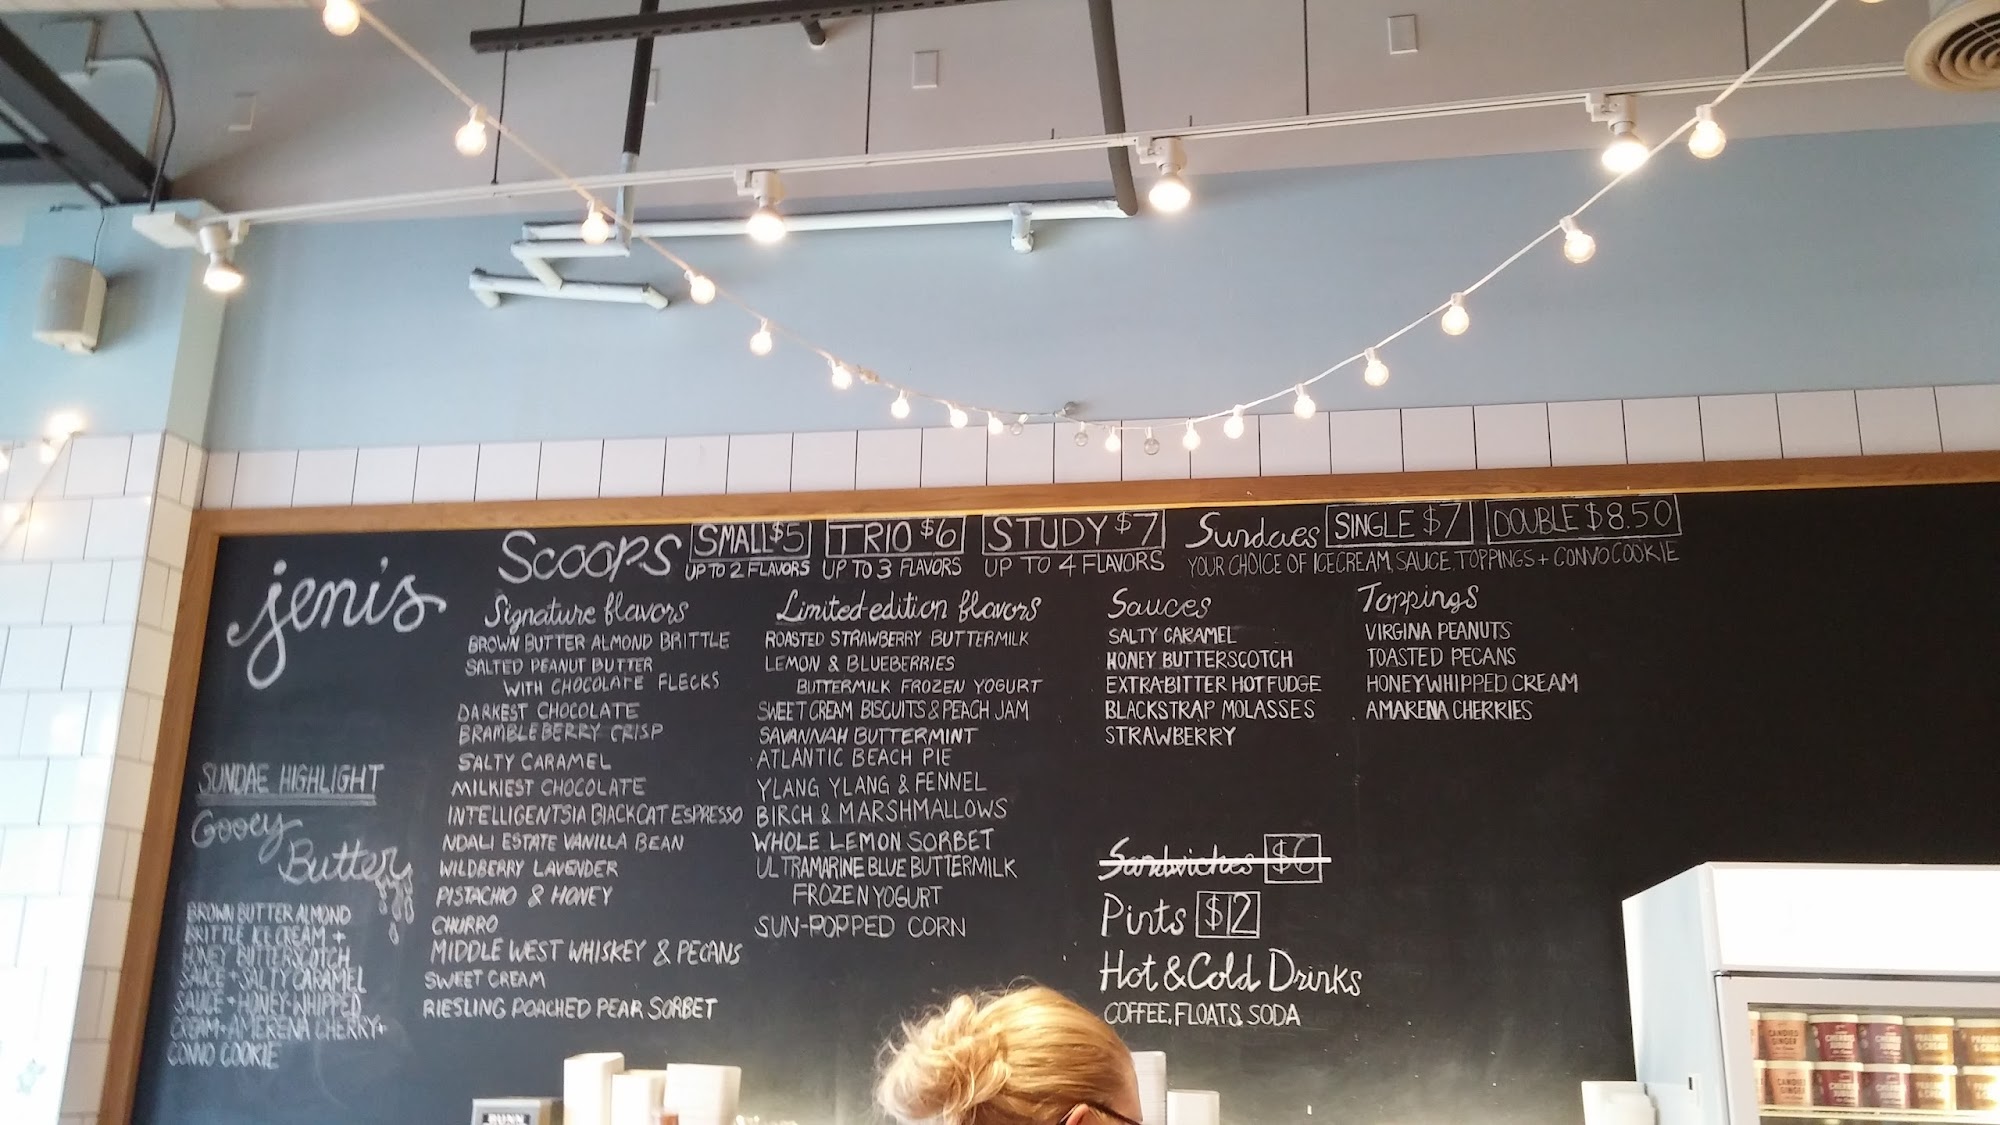 jeni's
Scoops SMALL $5 TRIO $6 STUDY $7
UP TO 2 FLAVORS UP TO 3 FLAVORS UP TO 4 FLAVORS
Sundaes SINGLE $7 DOUBLE $8.50
YOUR CHOICE OF ICE CREAM, SAUCE, TOPPINGS + CONVO COOKIE
SUNDAE HIGHLIGHT
Gooey
Butter
BROWN BUTTER ALMOND
BRITTLE ICE CREAM +
HONEY BUTTERSCOTCH
SAUCE + SALTY CARAMEL
SAUCE + HONEY-WHIPPED
CREAM + AMERENA CHERRY +
CONVO COOKIE
Signature flavors
BROWN BUTTER ALMOND BRITTLE
SALTED PEANUT BUTTER
WITH CHOCOLATE FLECKS
DARKEST CHOCOLATE
BRAMBLEBERRY CRISP
SALTY CARAMEL
MILKIEST CHOCOLATE
INTELLIGENTSIA BLACK CAT ESPRESSO
NDALI ESTATE VANILLA BEAN
WILDBERRY LAVENDER
PISTACHIO & HONEY
CHURRO
MIDDLE WEST WHISKEY & PECANS
SWEET CREAM
RIESLING POACHED PEAR SORBET
Limited-edition flavors
ROASTED STRAWBERRY BUTTERMILK
LEMON & BLUEBERRIES
BUTTERMILK FROZEN YOGURT
SWEET CREAM BISCUITS & PEACH JAM
SAVANNAH BUTTERMINT
ATLANTIC BEACH PIE
YLANG YLANG & FENNEL
BIRCH & MARSHMALLOWS
WHOLE LEMON SORBET
ULTRAMARINE BLUE BUTTERMILK
FROZEN YOGURT
SUN-POPPED CORN
Sauces
SALTY CARAMEL
HONEY BUTTERSCOTCH
EXTRA-BITTER HOT FUDGE
BLACKSTRAP MOLASSES
STRAWBERRY
Toppings
VIRGINA PEANUTS
TOASTED PECANS
HONEY-WHIPPED CREAM
AMARENA CHERRIES
Sandwiches $6
Pints $12
Hot & Cold Drinks
COFFEE, FLOATS, SODA
BUNN